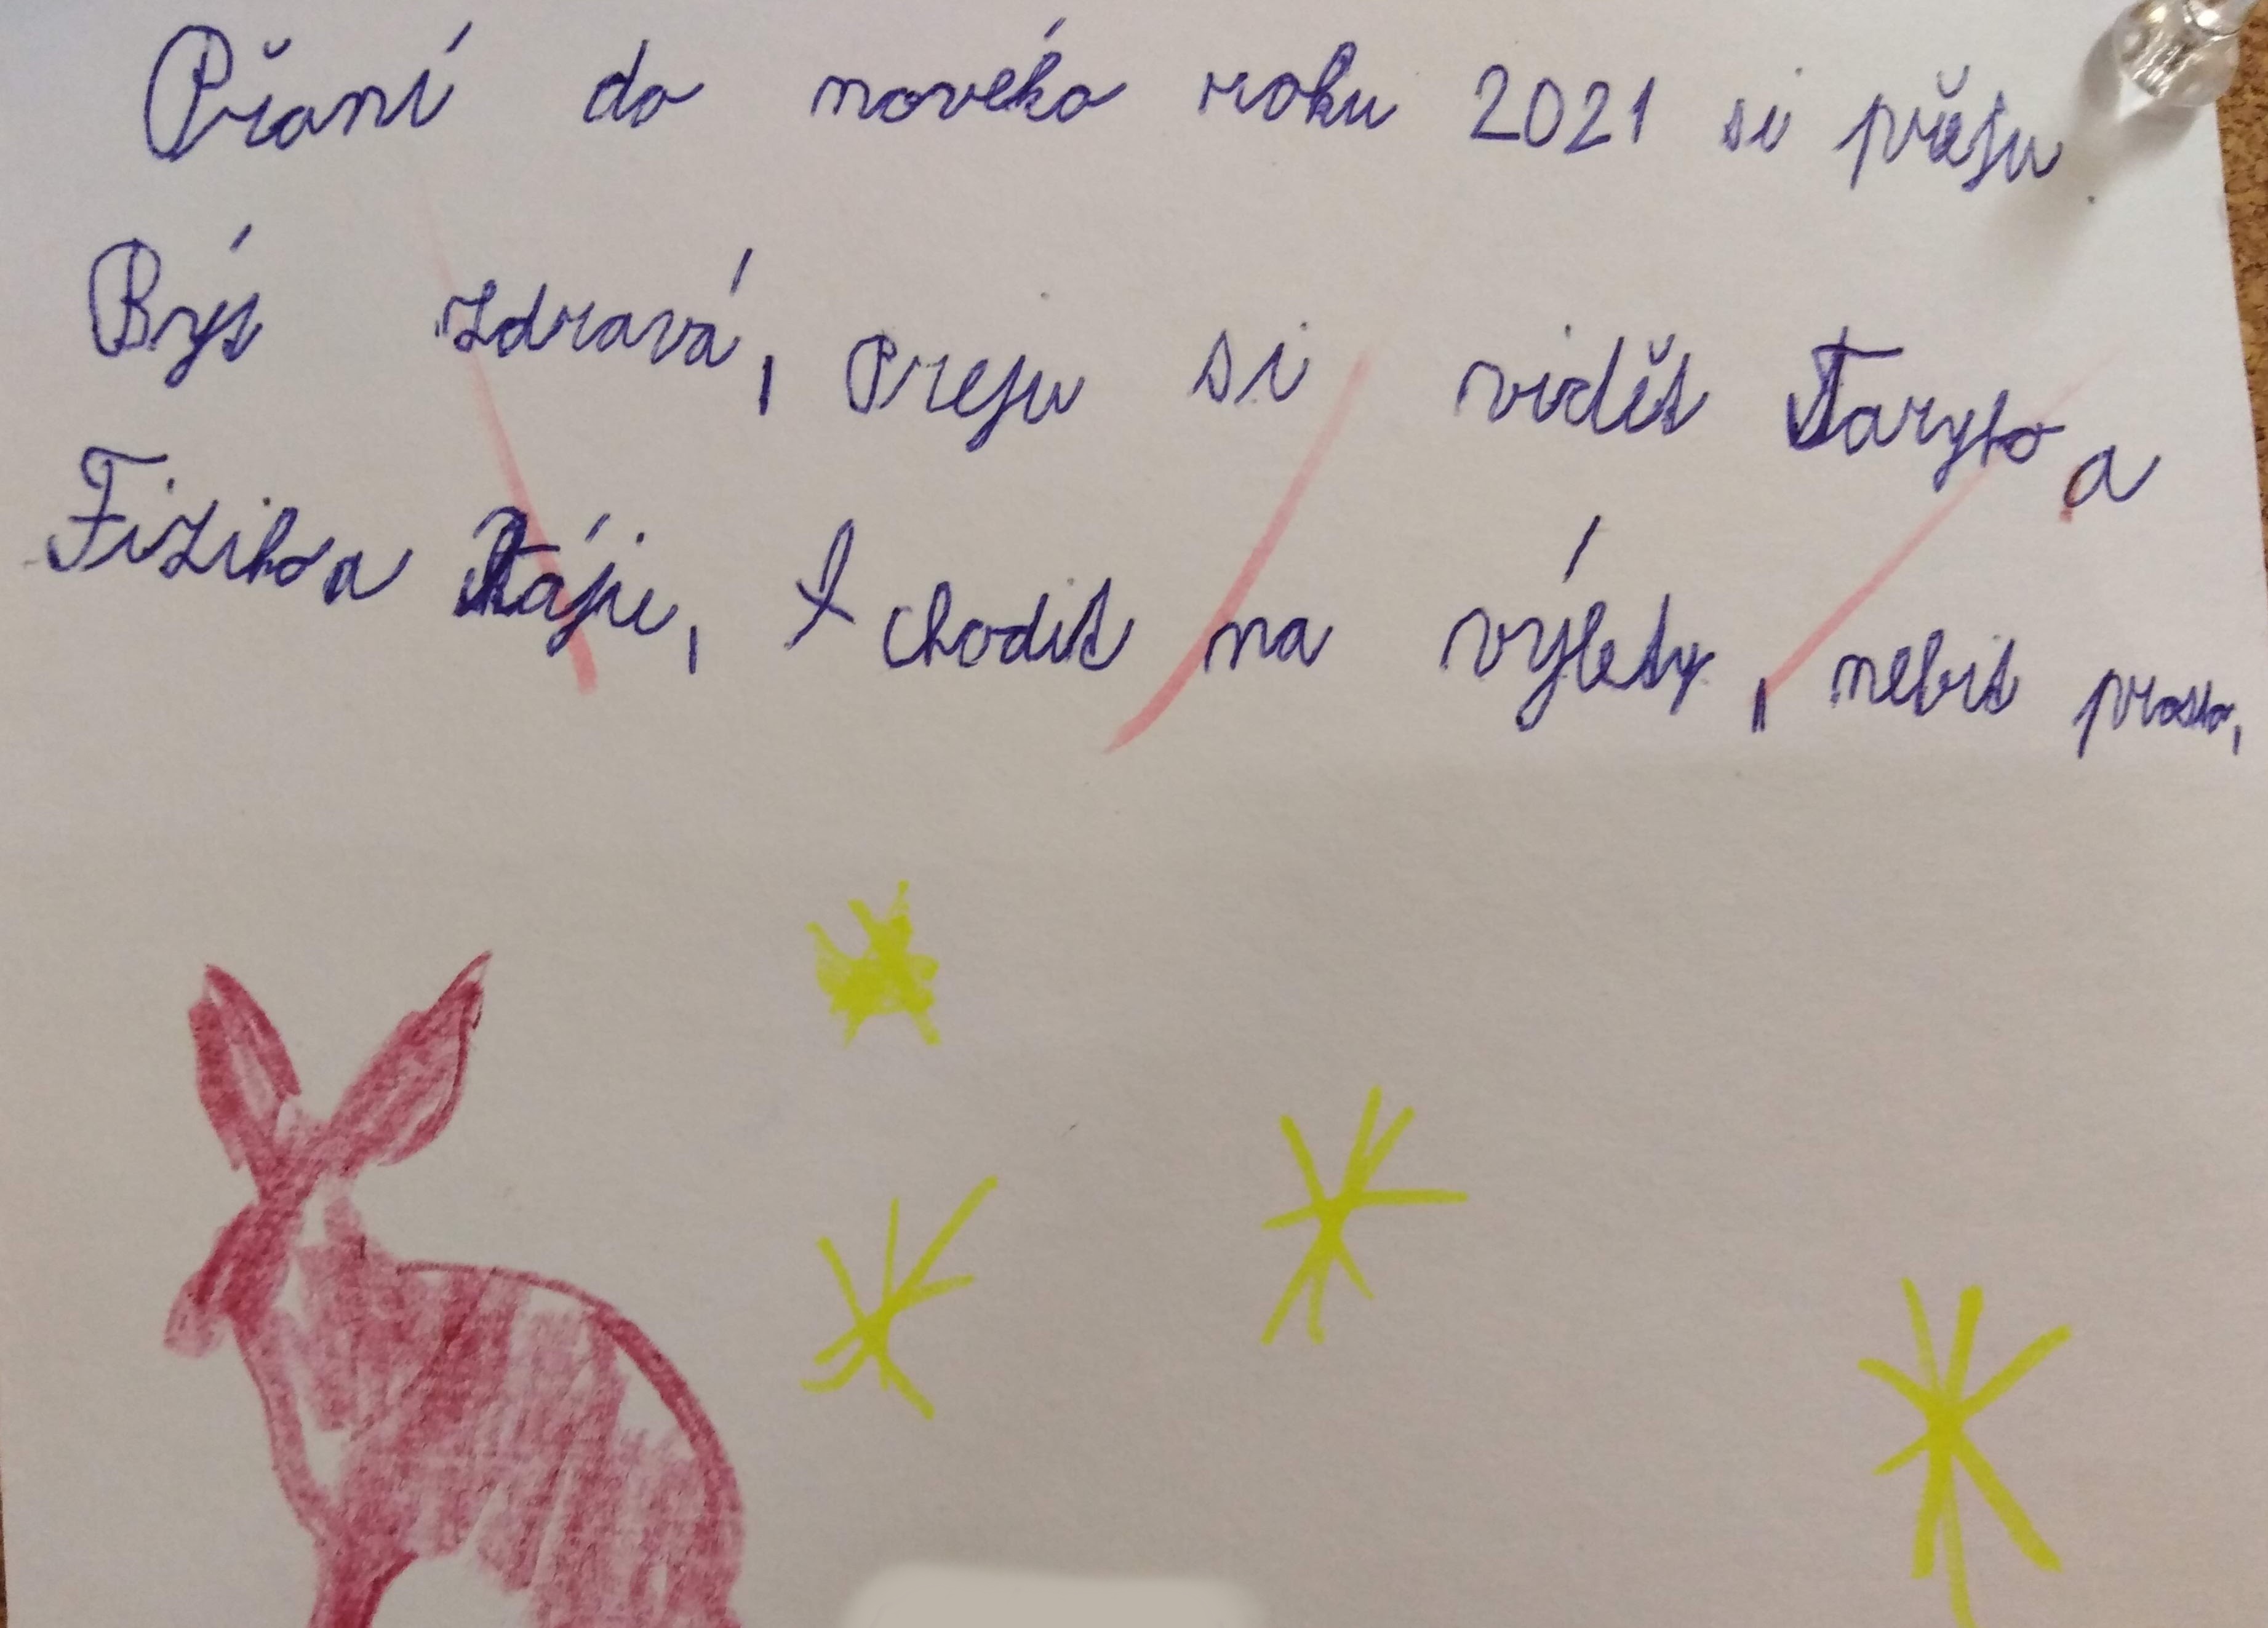 Přaní do nového roku 2021 si přeju.
Být zdravá, Preju si vidět Taryho a
Fizika a Ráju, chodit na výlety, nebít prosto,